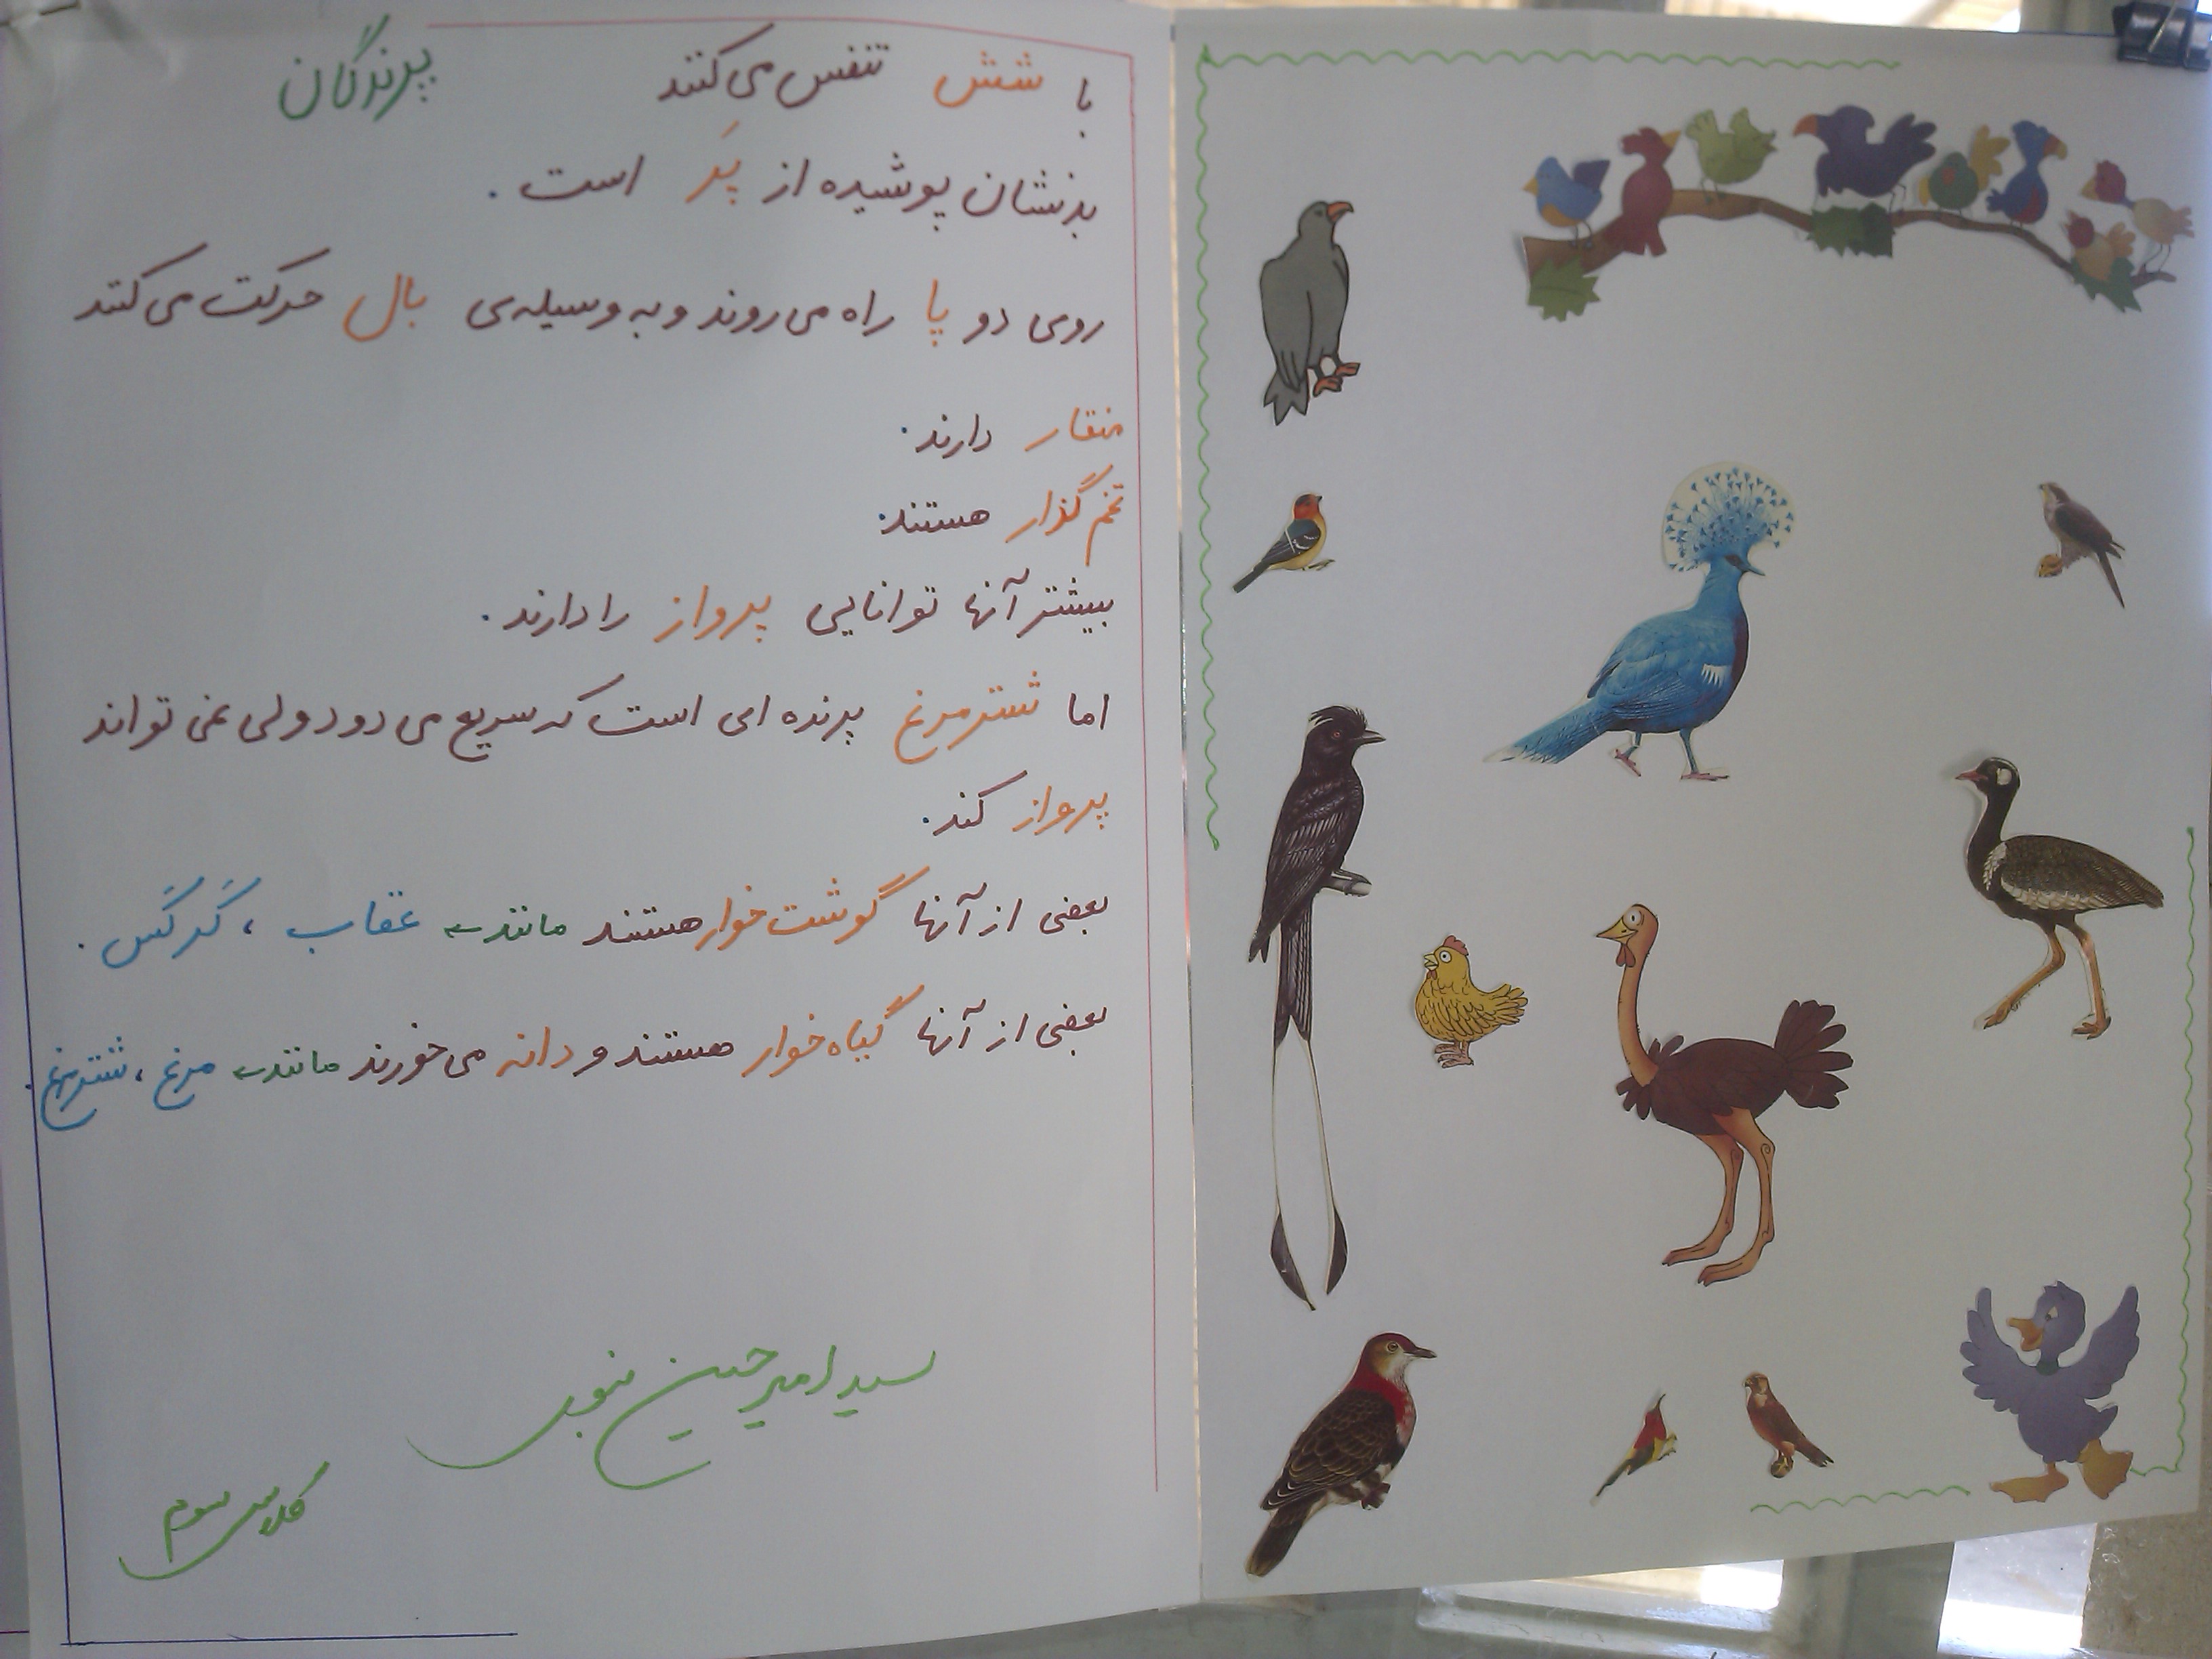 پرندگان
با شش تنفس می‌کنند
بدنشان پوشیده از پَر است.
روی دو پا راه می‌روند و به وسیله‌ی بال حرکت می‌کنند
منقار دارند.
تخم گذار هستند.
بیشتر آنها توانایی پرواز را دارند.
اما شترمرغ پرنده ای است که سریع می دود ولی نمی تواند
پرواز کند.
بعضی از آنها گوشت‌خوار هستند مانند← عقاب ، کَرکَس.
بعضی از آنها گیاه‌خوار هستند و دانه می‌خورند مانند← مرغ ، شترمرغ.
سید امیرحسین
کلاس سوم